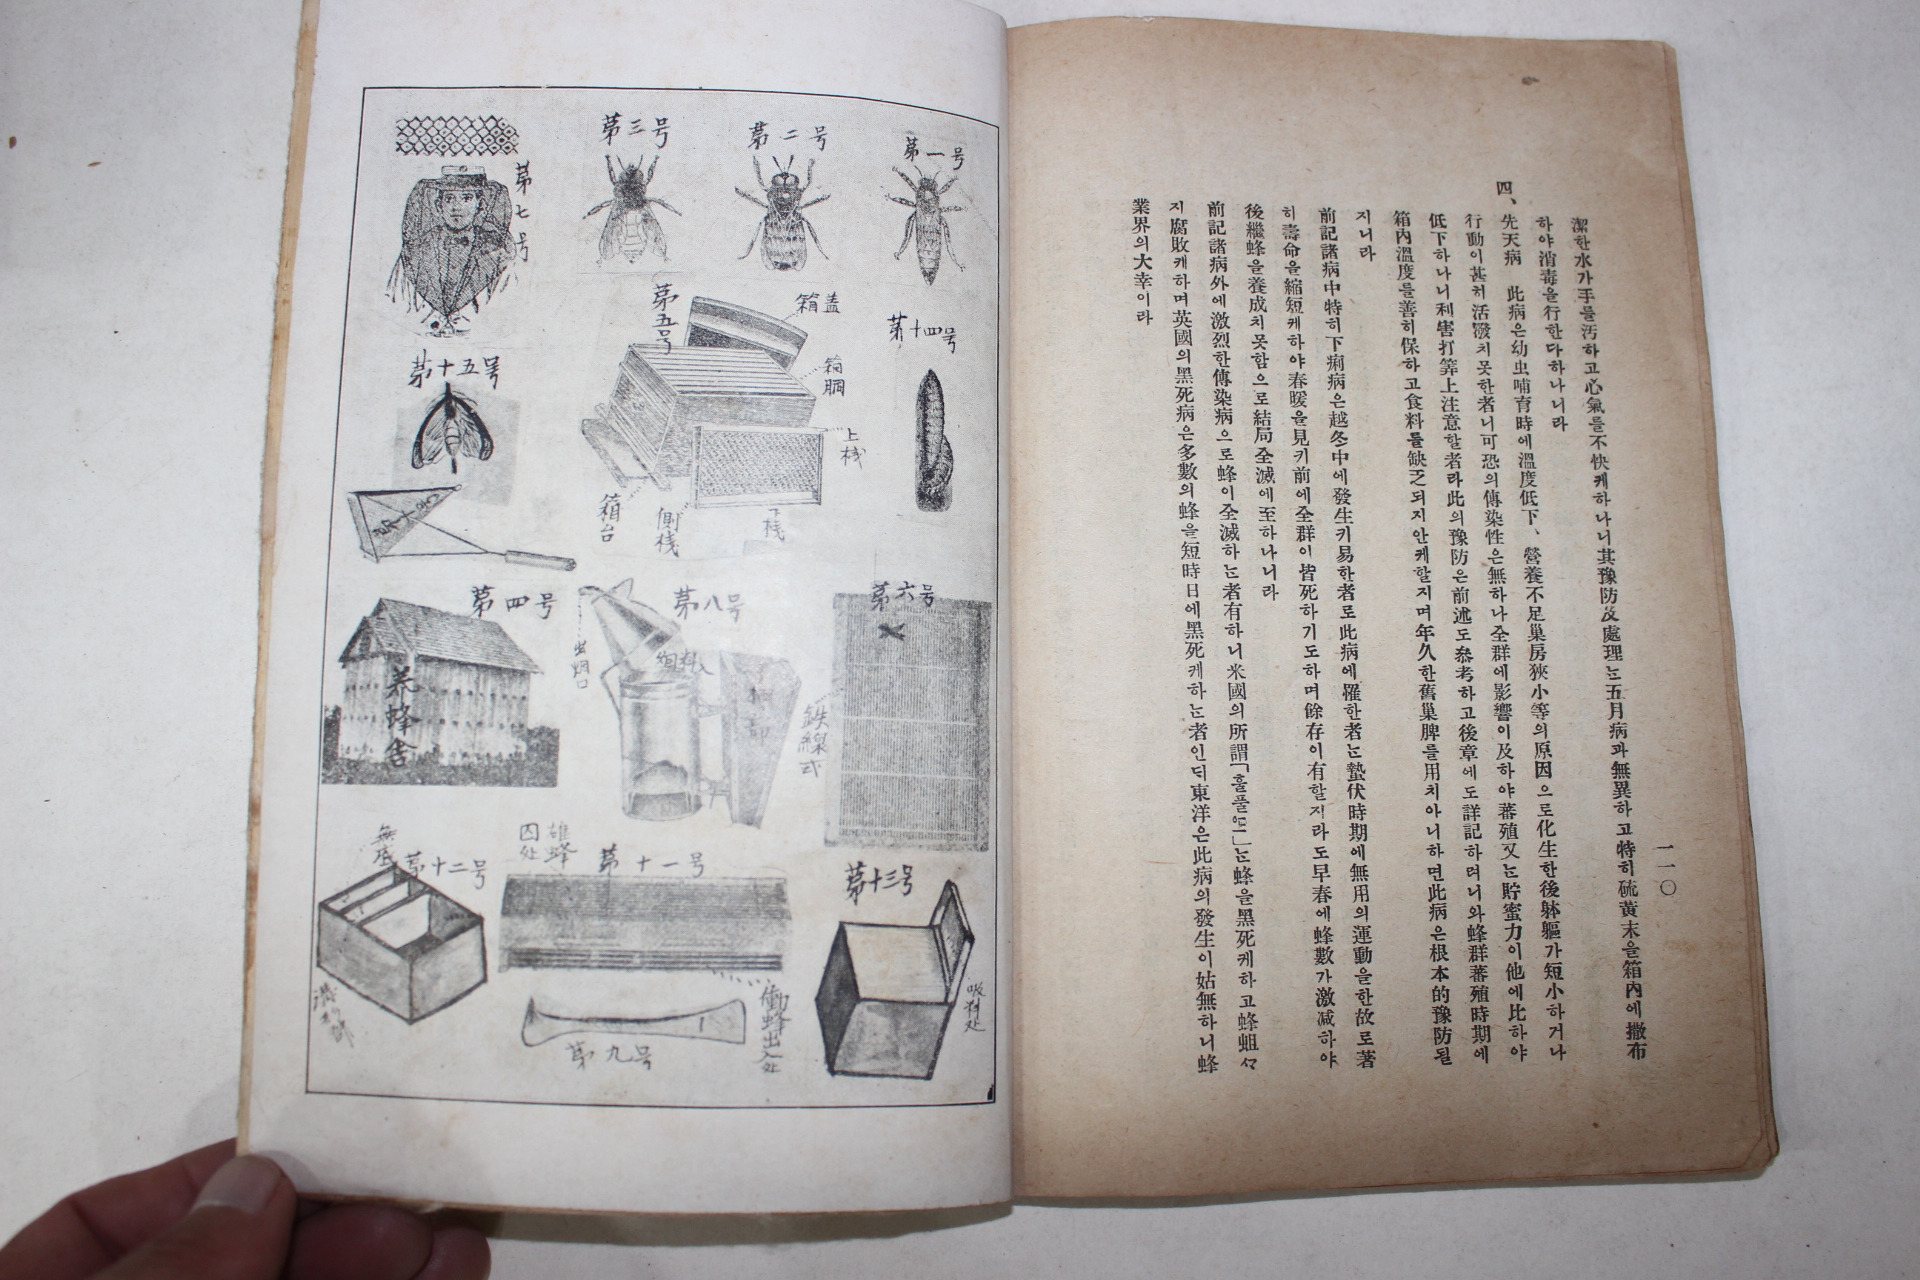 一一〇
潔한水가手를汚하고心氣를不快케하나니其豫防及處理는五月病과無異하고特히硫黃末을箱內에撒布
하야消毒을行한다하나니라
四、先天病 此病은幼虫哺育時에溫度低下、營養不足巢房狹小等의原因으로化生한後躰軀가短小하거나
行動이甚히活潑치못한者니可恐의傳染性은無하나全群에影響이及하야蕃殖又는貯蜜力이他에比하야
低下하나니利害打筭上注意할者라此의豫防은前述도叅考하고後章에도詳記하려니와蜂群蕃殖時期에
箱內溫度를善히保하고食料를缺乏되지안케할지며年久한舊巢脾를用치아니하면此病은根本的豫防될
지니라
前記諸病中特히下痢病은越冬中에發生키易한者로此病에罹한者는蟄伏時期에無用의運動을한故로著
히壽命을縮短케하야春暖을見키前에全群이皆死하기도하며餘存이有할지라도早春에蜂數가激減하야
後繼蜂을養成치못함으로結局全滅에至하나니라
前記諸病外에激烈한傳染病으로蜂이全滅하는者有하니米國의所謂「훌풀」는蜂을黑死케하고蜂蛆々
지腐敗케하며英國의黑死病은多數의蜂을短時日에黑死케하는者인대東洋은此病의發生이姑無하니蜂
業界의大幸이라
第一号
第二号
第三号
第七号
第十四号
第五号
箱盖
箱胴
上桟
下桟
側桟
箱台
第十五号
第十号
第六号
鉄線式
第八号
出烟口
第四号
養蜂舍
第十三号
吸料处
第十一号
雄蜂
囚处
働蜂出入处
第九号
第十二号
無底